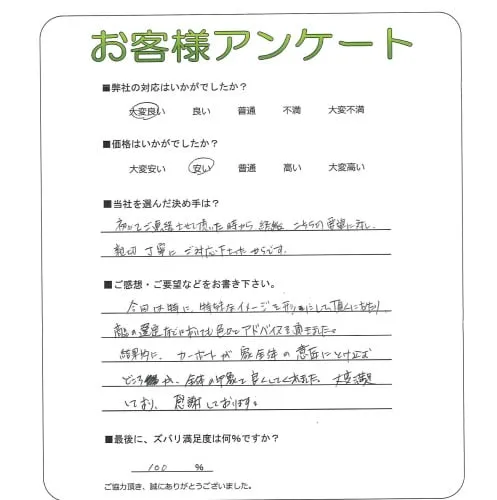 お客様アンケート
■弊社の対応はいかがでしたか？
大変良い 良い 普通 不満 大変不満
■価格はいかがでしたか？
大変安い 安い 普通 高い 大変高い
■当社を選んだ決め手は？
初めてご連絡させて頂いた時から 終始 こちらの要望に対し、
親切 丁寧に ご対応下さったからです。
■ご感想・ご要望などをお書き下さい。
今回は特に、特殊なイメージを形にして頂くにあたり、
商品の選定 色々とアドバイスを頂きました。
結果的に、カーポートが 家全体の 意匠に とけ込む
どころか、全体の印象を良くしてくれました。大変満足
しており、感謝しております。
■最後に、ズバリ満足度は何％ですか？
100 ％
ご協力頂き、誠にありがとうございました。